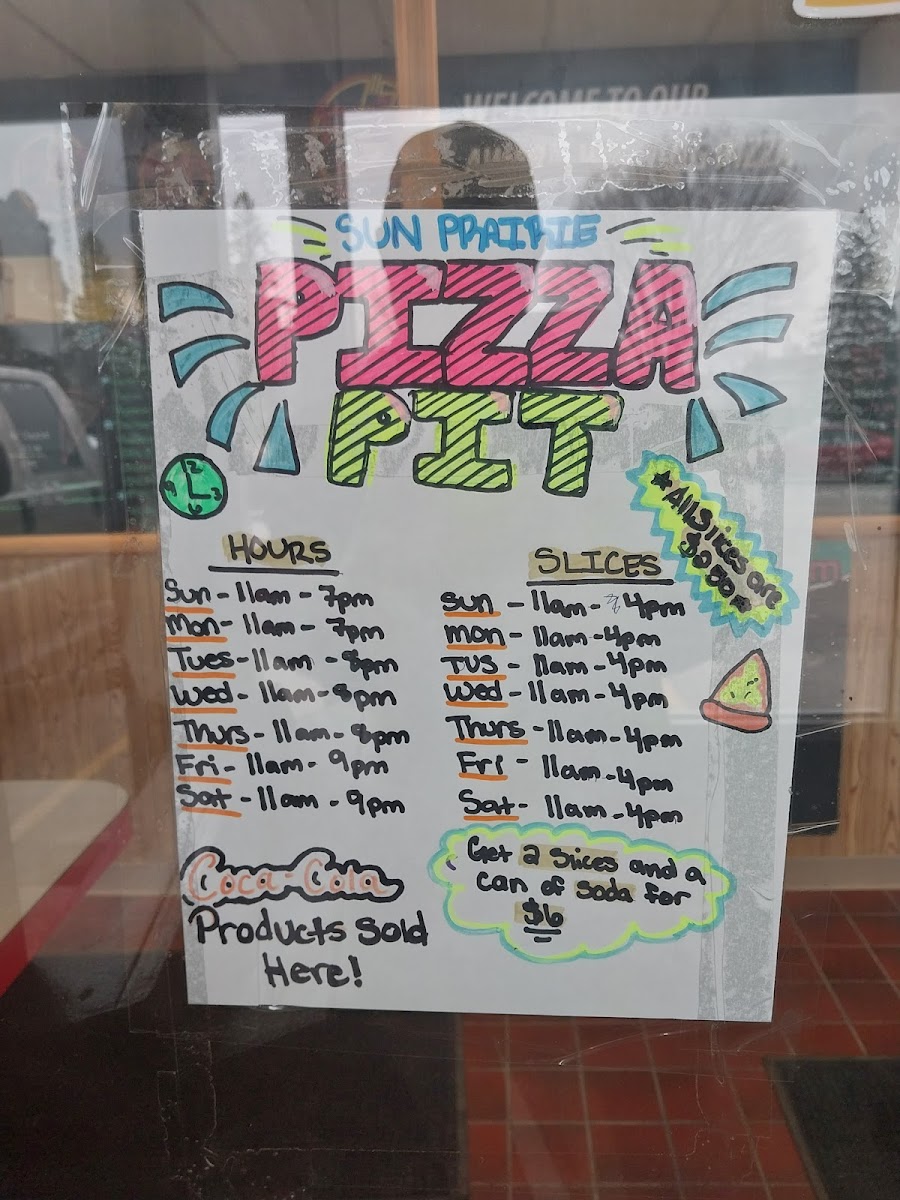 WELCOME TO OUR
SUN PRAIRIE
PIZZA
PIT
* All Slices are
HOURS
Sun - 11am - 7pm
Mon - 11am - 7pm
Tues - 11am - 8pm
Wed - 11am - 8pm
Thurs - 11am - 8pm
Fri - 11am - 9pm
Sat - 11am - 9pm
SLICES
Sun - 11am - 4pm
mon - 11am - 4pm
TUS - 11am - 4pm
Wed - 11am - 4pm
Thurs - 11am - 4pm
Fri - 11am - 4pm
Sat - 11am - 4pm
Coca-Cola
Products Sold
Here!
Get 2 Slices and a
can of soda for
$6